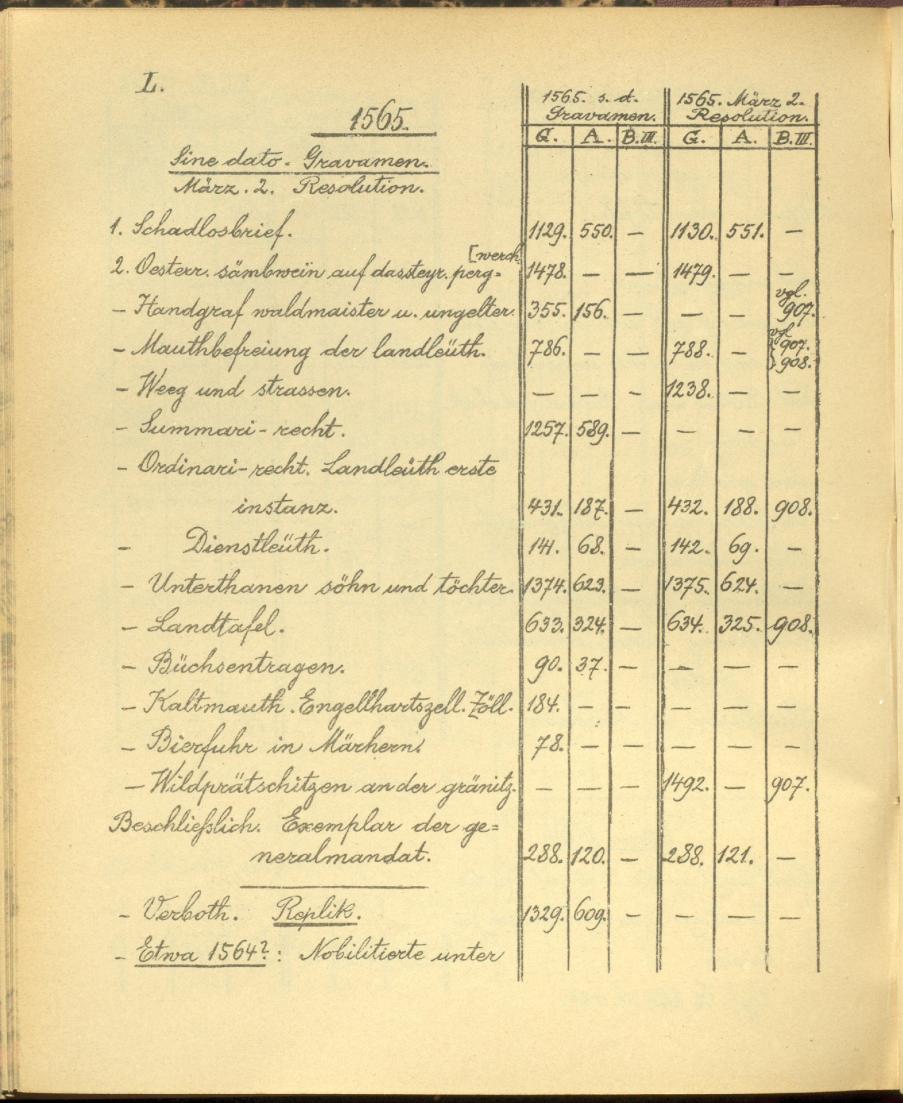 L.
1565. s. d. Gravamen. 1565. März 2. Resolution.
1565.
G. A. B.III. G. A. B.III.
Sine dato. Gravamen.
März. 2. Resolution.
1. Schadlosbrief. 1129. 550. — 1130. 551. —
[werch
2. Oesterr. sämbwein auf das steyr. perg= 1478. — — 1479. — —
— Handgraf waldmaister u. ungelter. 355. 156. — — — vgl. 907.
— Mauthbefreiung der landleüth. 786. — — 788. — vgl. 907. 908.
— Weeg und strassen. — — — 1238. — —
— Summari-recht. 1257. 589. — — — —
— Ordinari-recht. Landleüth erste
instanz. 431. 187. — 432. 188. 908.
— Dienstleüth. 141. 68. — 142. 69. —
— Unterthanen söhn und töchter. 1374. 623. — 1375. 624. —
— Landtafel. 633. 324. — 634. 325. 908.
— Büchsentragen. 90. 37. — — — —
— Kaltmauth. Engellhartszell. Zöll. 184. — — — — —
— Bierfuhr in Märhern. 78. — — — — —
— Wildprätschitzen an der gränitz. — — — 1492. — 907.
Beschließlich. Exemplar der ge=
neralmandat. 288. 120. — 288. 121. —
— Verboth. Replik. 1329. 609. — — — —
— Etwa 1564?: Nobilitierte unter